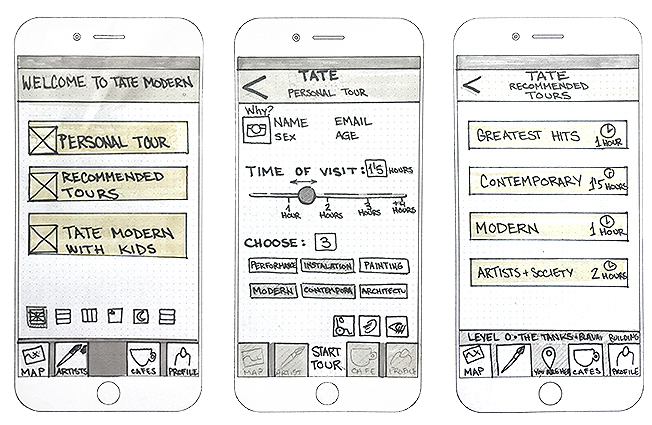 WELCOME TO TATE MODERN
PERSONAL TOUR
RECOMMENDED
TOURS
TATE MODERN
WITH KIDS
MAP
ARTISTS
CAFES
PROFILE
TATE
PERSONAL TOUR
Why?
NAME EMAIL
SEX AGE
TIME OF VISIT: 1'5 HOURS
1 HOUR
2 HOURS
3 HOURS
+4 HOURS
CHOOSE: 3
PERFORMANCE INSTALATION PAINTING
MODERN CONTEMPORA ARCHITECTU
MAP
ARTIST
START
TOUR
CAFE
PROFILE
TATE
RECOMMENDED
TOURS
GREATEST HITS 1 HOUR
CONTEMPORARY 1'5 HOURS
MODERN 1 HOUR
ARTISTS + SOCIETY 2 HOURS
LEVEL 0 THE TANKS + BUILDING
MAP
YOU ARE HERE
CAFES
PROFILE